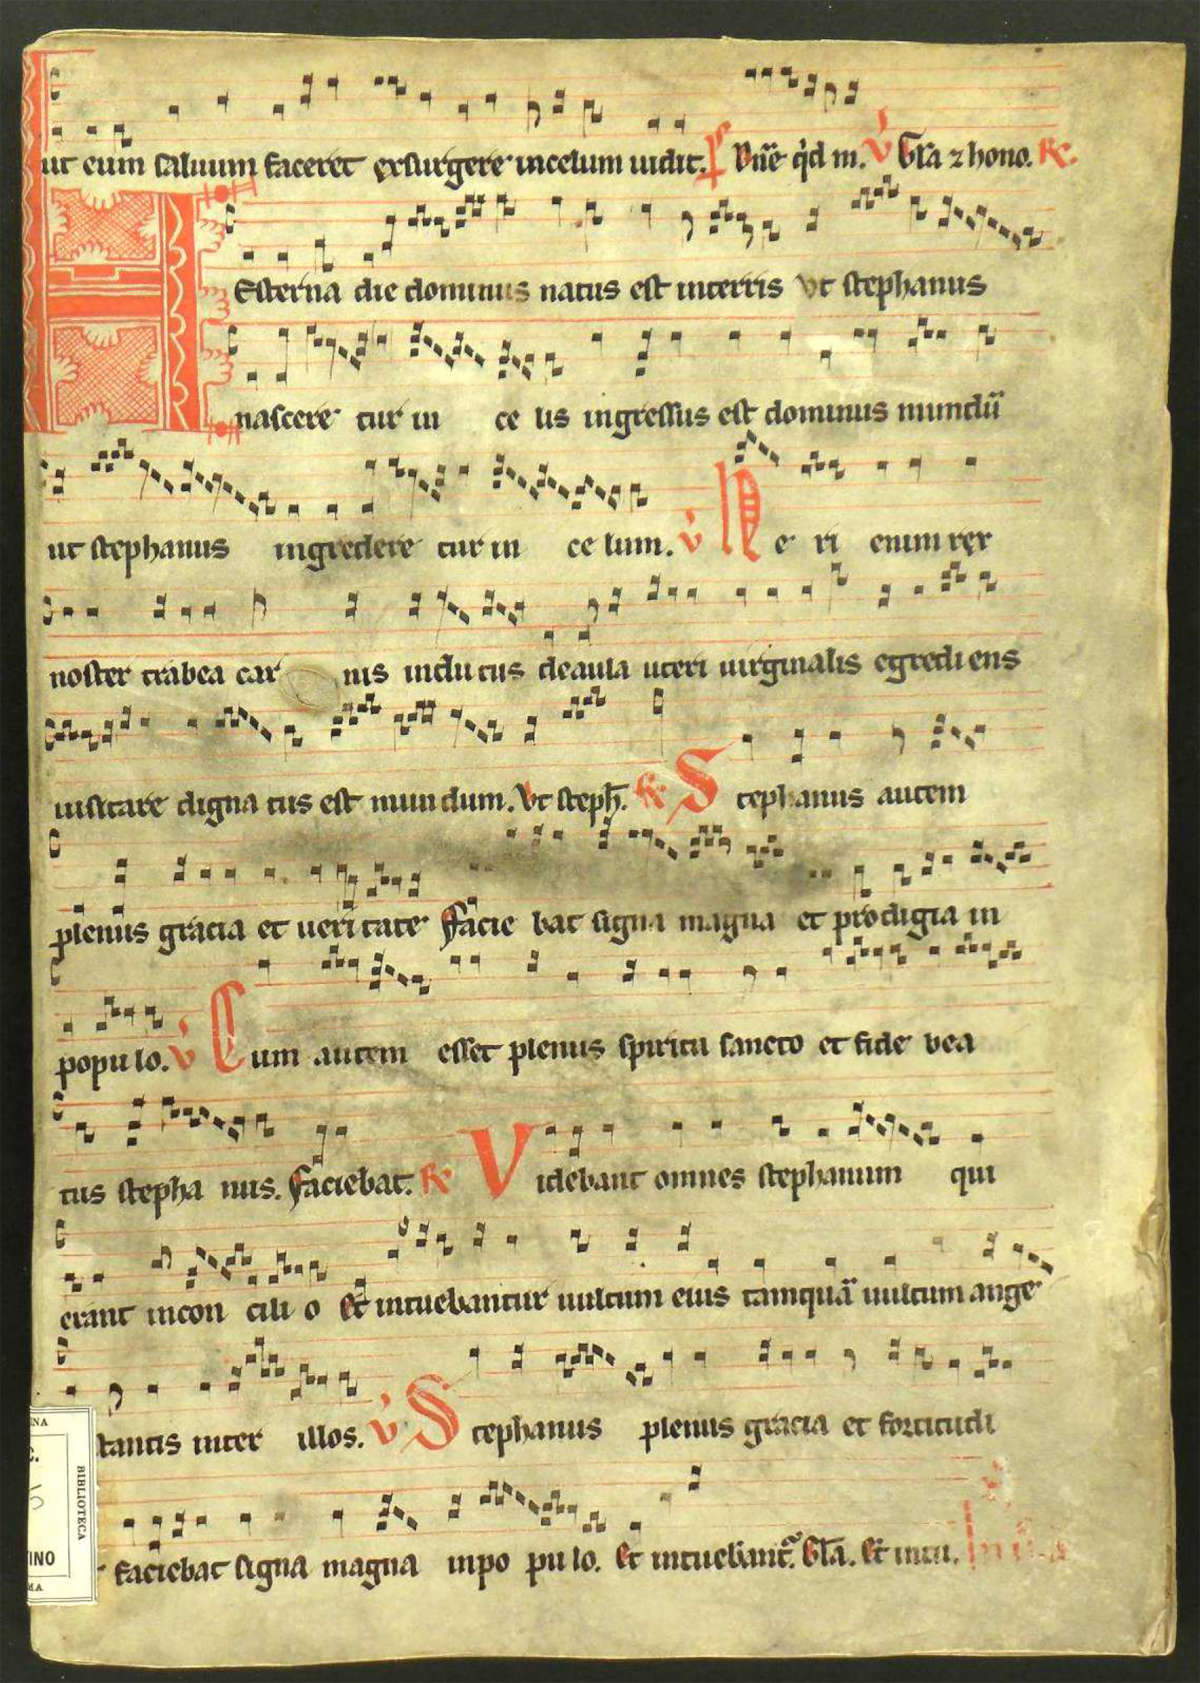 ut eum saluum faceret exsurgere in celum uidit. Dn̄e q̇d m. V̇ Gl̄a ⁊ hono. R̄.
Hesterna die dominus natus est in terris vt stephanus
nascere tur in ce lis ingressus est dominus mundū
ut stephanus ingredere tur in ce lum. V̇ He ri enim rex
noster trabea car nis indutus de aula uteri uirginalis egredi ens
uisitare digna tus est mun dum. Vt steph̄. R̄ Stephanus autem
plenus gracia et ueri tate facie bat signa magna et prodigia in
popu lo. V̇ Cum autem esset plenus spiritu sancto et fide bea
tus stepha nus. faciebat. R̄ Videbant omnes stephanum qui
erant in con cili o Et intuebantur uultum eius tamquā uultum ange
stantis inter illos. V̇ Stephanus plenus gracia et fortitudi
faciebat signa magna in po pu lo. Et intuebant̄. Gl̄a. Et intu.
BIBLIOTECA